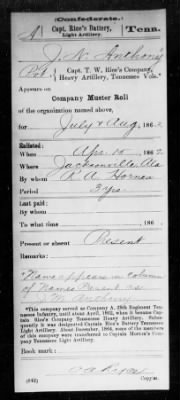 (Confederate.)
A Capt. Rice's Battery, Light Artillery. Tenn.
J. N. Anthony
Pvt., Capt. T. W. Rice's Company, Heavy Artillery, Tennessee Vols.*
Appears on
Company Muster Roll
of the organization named above,
for July & Aug, 186
Enlisted:
When Apr 15, 186
Where Jacksonville Ala
By whom R. A.
Period 3 yrs
Last paid:
By whom
To what time , 186
Present or absent Present
Remarks:
Name appears in column
of Names Present as
*This company served as Company A, 38th Regiment Tennessee Infantry, until about April, 1862, when it became Captain Rice's Company Tennessee Heavy Artillery. Subsequently it was designated Captain Rice's Battery Tennessee Light Artillery. About December, 1864, some of the members of this company were transferred to Morton's Company Tennessee Light Artillery.
Book mark:
(642)
Copyist.